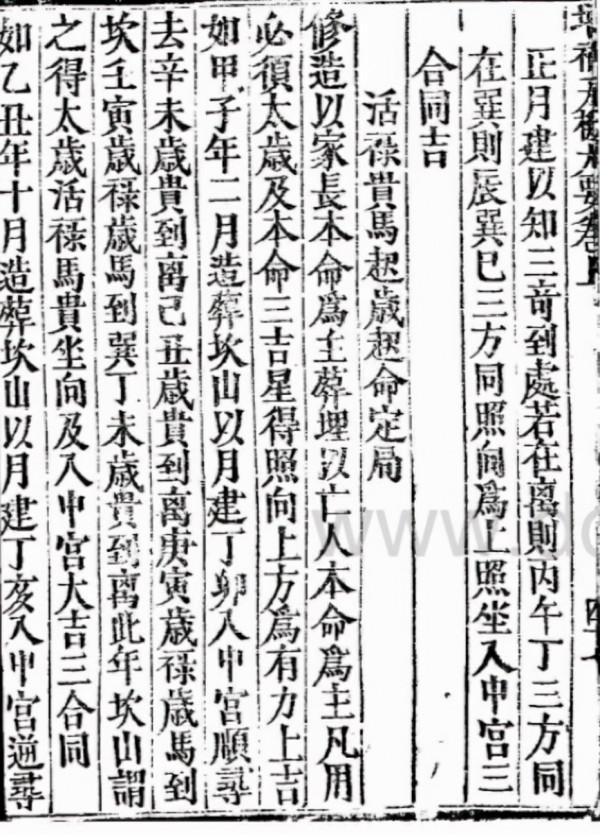 正月建以知三竒到處若在离則丙午丁三方同
在巽則辰巽巳三方同照向爲上照坐入中宮三
合同吉
活祿貴馬起歲起命定局
修造以家長本命爲主葬埋以亡人本命爲主凡用
必須太歲及本命三吉星得照向上方爲有力上吉
如甲子年二月造葬坎山以月建丁卯入中宮順尋
去辛未歲貴到离己丑歲貴到离庚寅歲祿歲馬到
坎壬寅歲祿歲馬到巽丁未歲貴到离此年坎山謂
之得太歲活祿馬貴坐向及入中宮大吉三合同
如乙丑年十月造葬坎山以月建丁亥入中宮逆尋
www.do